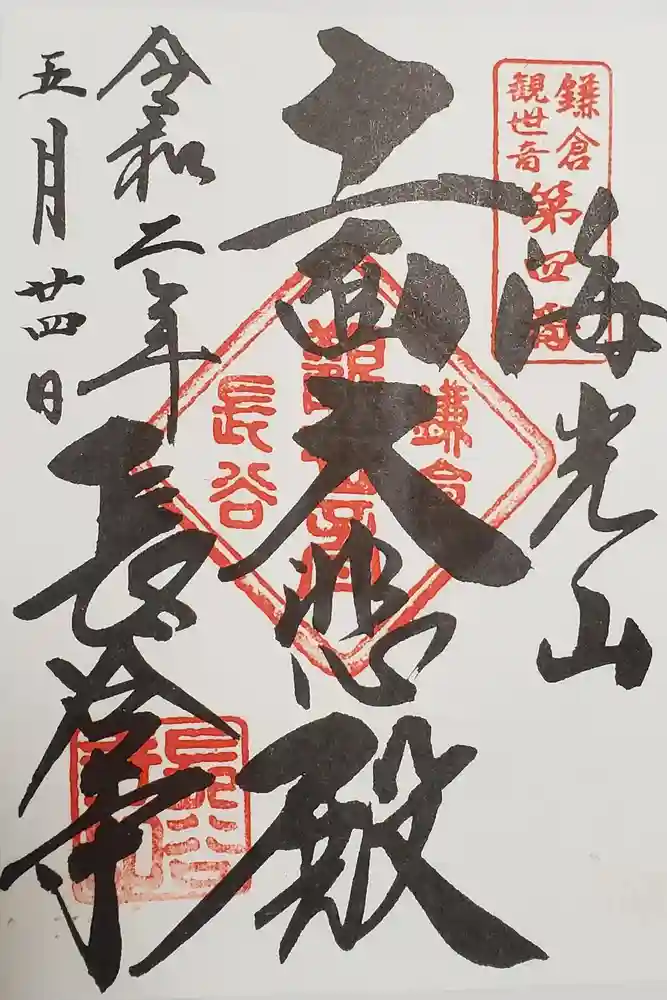 鎌倉
観世音
第四番
海光山
十一面大悲殿
鎌倉
觀世音
長谷
令和二年
五月廿四日
長谷寺